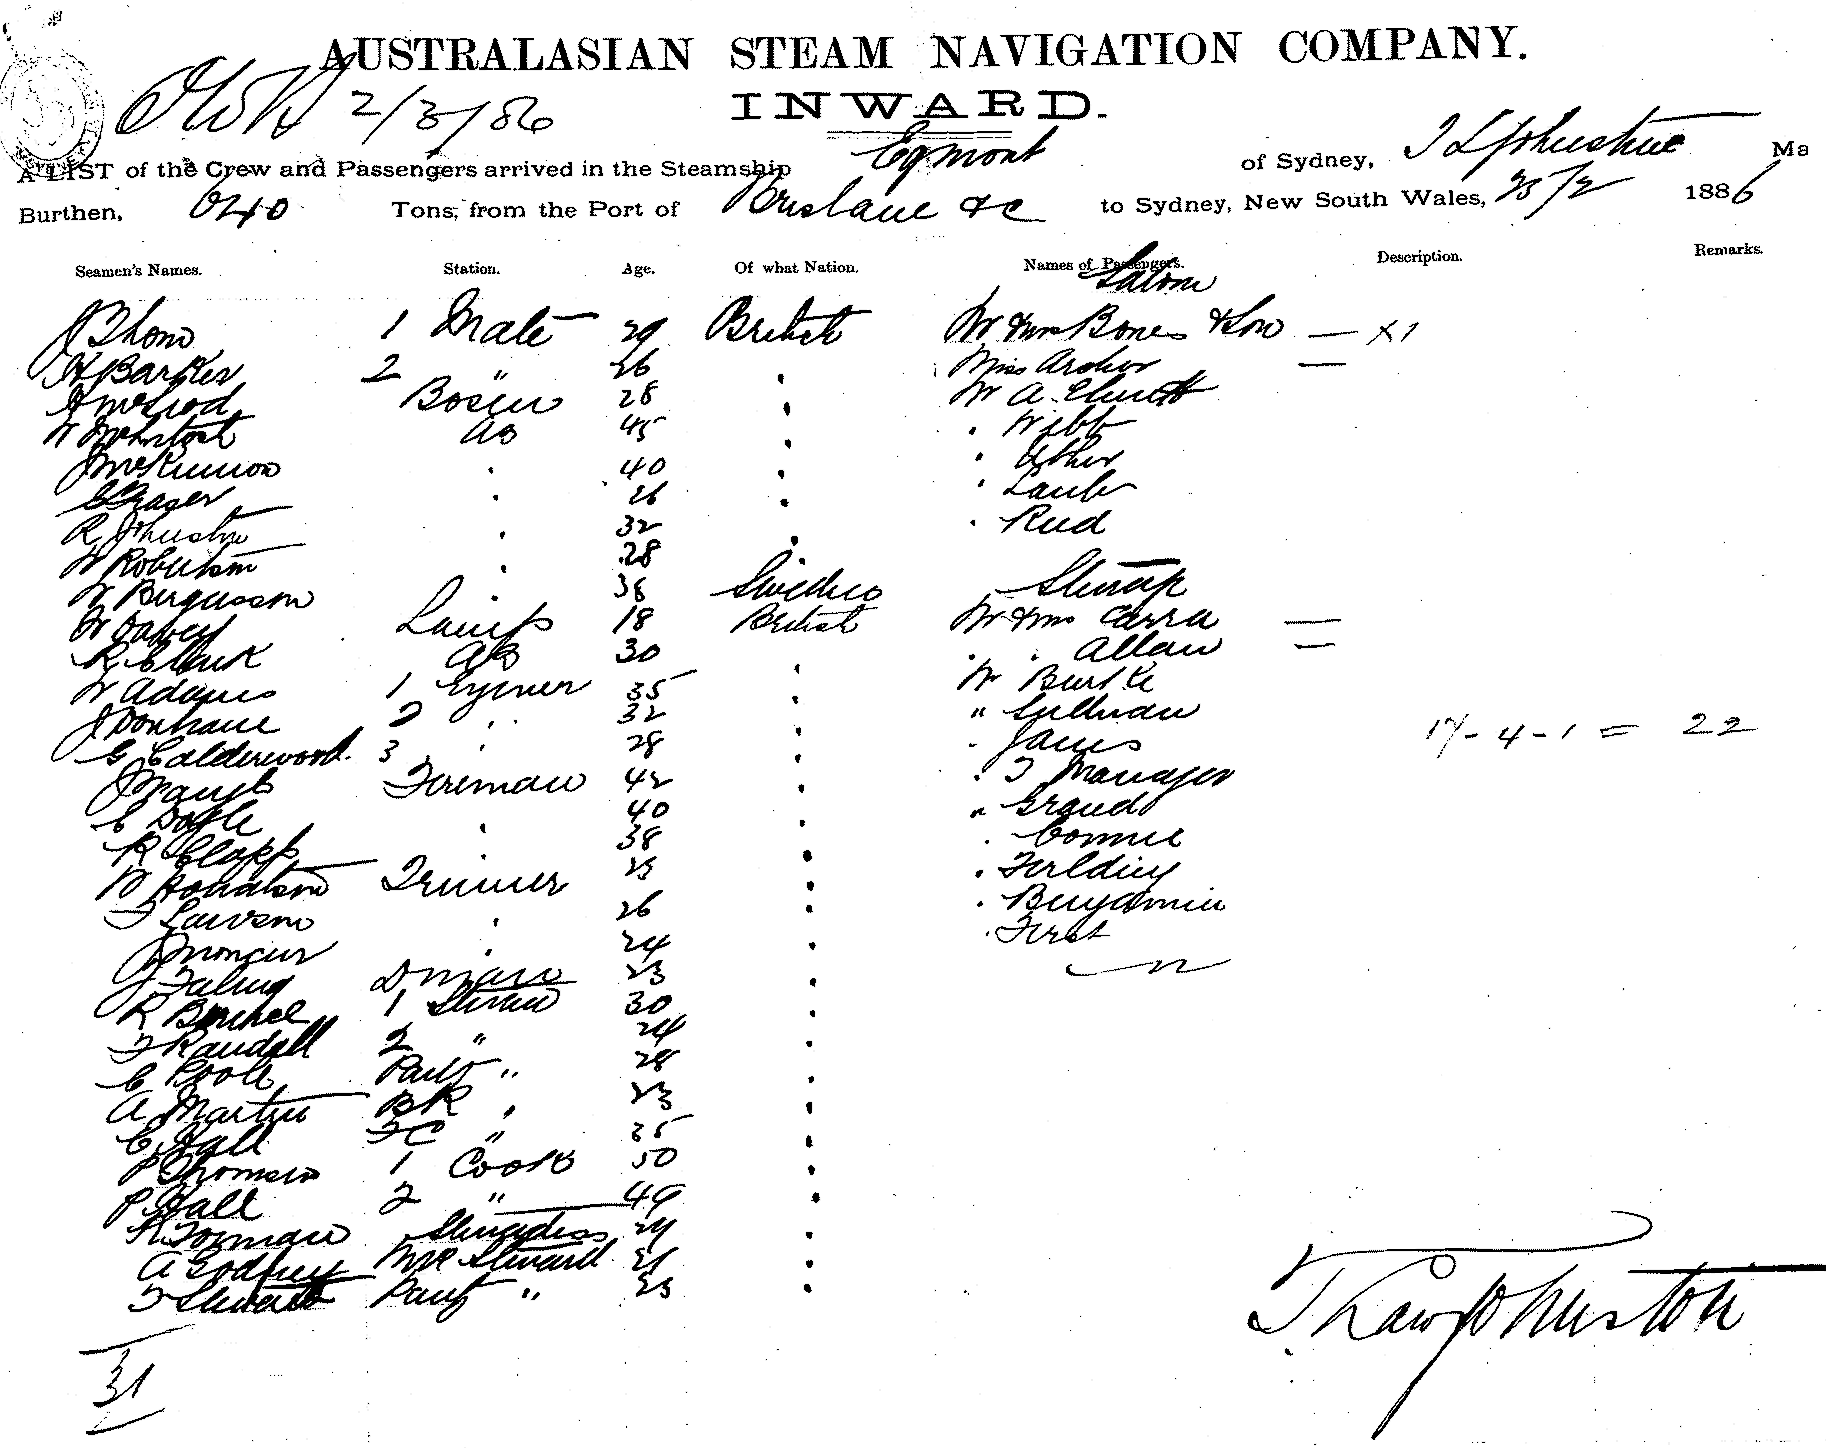 AUSTRALASIAN STEAM NAVIGATION COMPANY.
2/3/86 INWARD.
A LIST of the Crew and Passengers arrived in the Steamship Egmont of Sydney, T L Johnston Ma
Burthen, 640 Tons, from the Port of Brisbane &c to Sydney, New South Wales, 28/2 1886
Seamen's Names. Station. Age. Of what Nation. Names of Passengers. Description. Remarks.
Saloon
1 Mate 29 British Mr & Mrs Bones & Son — x1
H Barker 2 " 26 . Miss Archer —
A McLeod Bosun 28 . Mr A. Elliott
W McIntosh AB 45 . . Webb
J McKinnon . 40 . . Usher
C Fraser . 26 . .
R Johnston . 32 . . Reid
W Robertson . 28 .
W Fergusson . 38 Swedish Steerage
Lamps 18 British Mr & Mrs Carra —
R Clark AB 30 . . . Allan —
W Adams 1 Engineer 35 . Mr Burke
J Donhane 2 . 32 . " Sullivan 17 - 4 - 1 = 22
G Calderwood. 3 . 28 . . James
Fireman 42 . . T Manager
C Doyle . 40 . " Graud
R Clapp . 38 . .
W Donalson Trimmer 23 . . Fielding
T Lawson . 26 . . Benjamin
J Moncur . 24 . . First
J 23 .
R 1 Steward 30 .
T Randall 2 " 24 .
C Poole Pantry " 28 .
A Martin BK " 23 .
C Hall FC " 35 .
P Thomson 1 Cook 50 .
P Hall 2 " 49 .
Forman Stewardess .
A Godfrey Steward .
T Stewart Pantry " 23 .
31
T Law Johnston